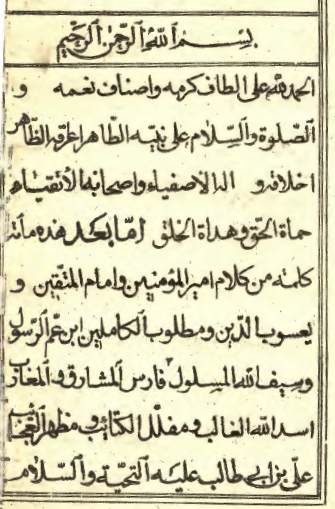 بسم الله الرحمن الرحيم
الحمد لله على الطاف كرمه واصناف نعمه و
الصلوة والسلام على نبيه الطاهر اعرقه الظاهر
اخلاقه و اله الاصفياء واصحابه الاتقياء
حماة الحق وهداة الخلق اما بعد هذه مائة
كلمة من كلام امير المؤمنين وامام المتقين و
يعسوب الدين ومطلوب الكاملين ابن عم الرسول
وسيف الله المسلول فارس المشارق والمغارب
اسد الله الغالب ومفلل الكتائب ومظهر العجائب
على بن ابي طالب عليه التحية والسلام